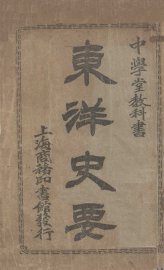 中學堂教科書
東洋史要
上海商務印書館發行